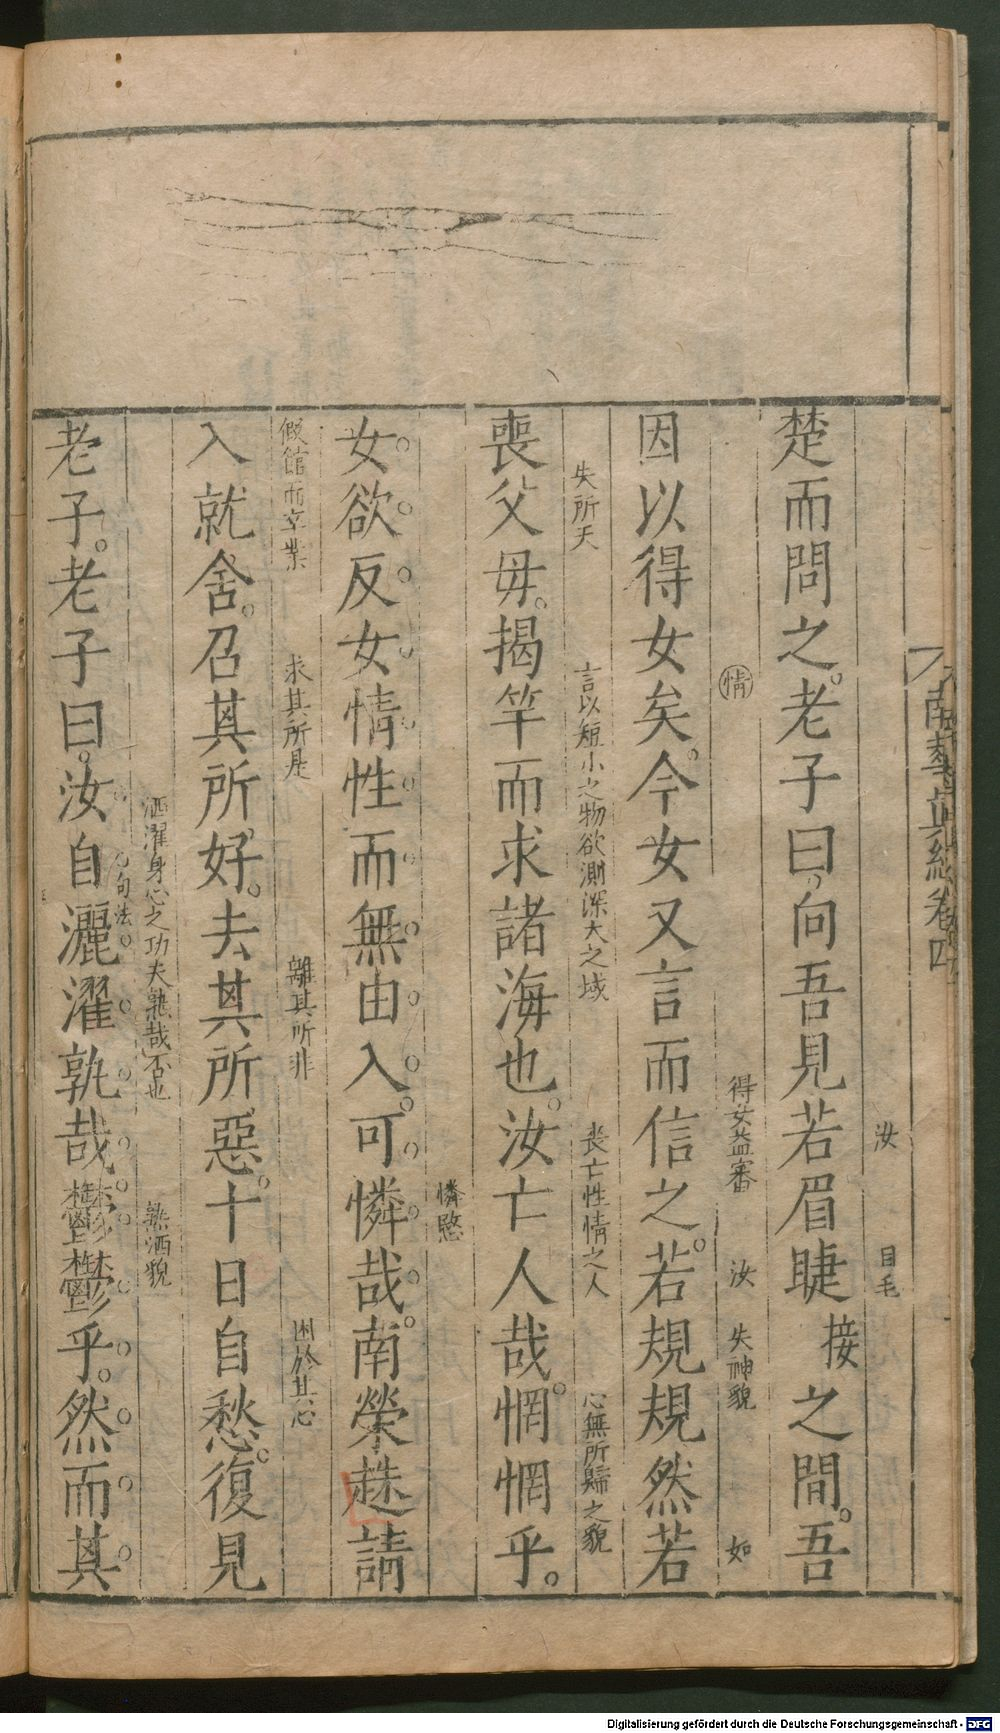 南華真經卷四
汝　目毛
楚而問之。老子曰。向吾見若眉睫接之間。吾
情　得女益審　汝　失神貌　如
因以得女矣。今女又言而信之。若規規然若
失所天　言以短小之物欲測深大之域　喪亡性情之人　心無所歸之貌
喪父毋。揭竿而求諸海也。汝亡人哉。惘惘乎。
憐愍
女欲反女情性而無由入。可憐哉。南榮趎請
假館而卒業　求其所是　離其所非　困於其心
入就舍。召其所好。去其所惡。十日自愁。復見
句法　洒濯身心之功夫熟哉否也　熟洒貌
老子。老子曰。汝自灑濯孰哉。鬱鬱乎。然而其
Digitalisierung gefördert durch die Deutsche Forschungsgemeinschaft - DFG